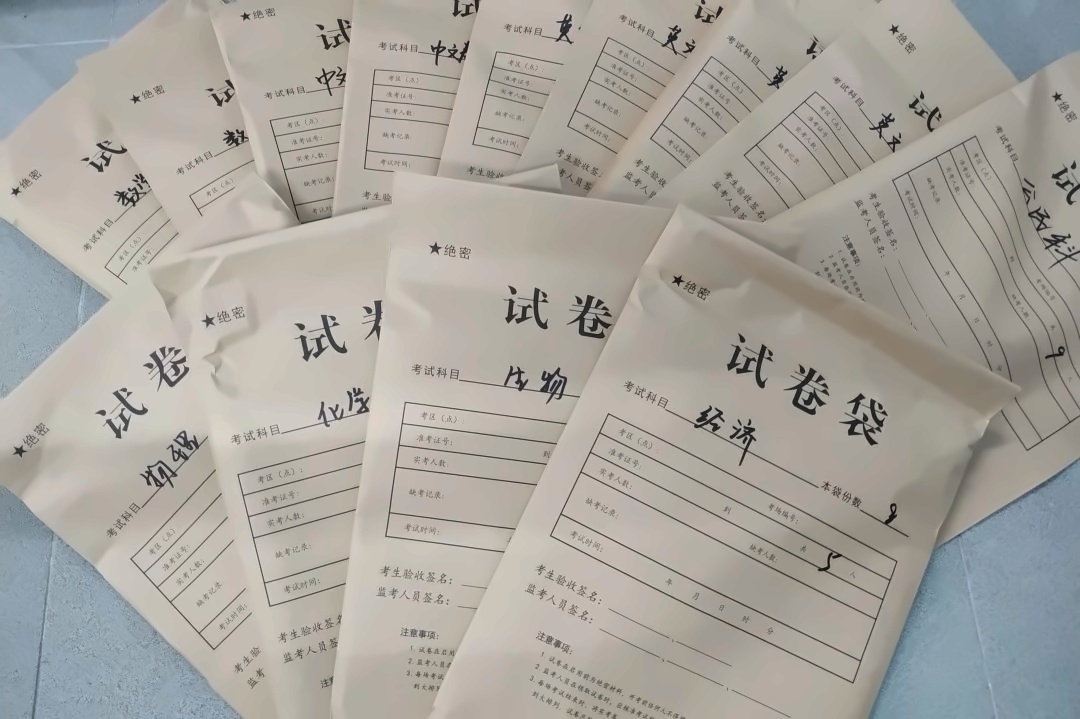 ★绝密
试
考试科目 数学
考区（点）
准考证号:
★绝密
试
考试科目 数
考区（点）
★绝密
试
考试科目 中文
考区（点）
准考证号:
实考人数:
缺考记录:
考试时间:
试
考试科目 中文
考区（点）
准考证号:
实考人数:
缺考记录:
考试时间:
考生验收签名
考试科目 英
考区（点）
准考证号
实考人数:
缺考记录:
考试时间:
考生验
监考人员签
试
考试科目 英文
考区（点）
准考证号:
实考人数:
缺考记录
考试时间:
考生
监考
试
考试科目 英
考区（点）
准考证号:
实考人数:
缺考记录
考试时间:
考生验收
监考人员签
★绝密
试
考试科目 英文
考区（点）
准考证号:
实考人数:
缺考记录
考试时间:
考生验收签名:
监考人员签名:
★绝密
试
考试科目 公民科
考区（点）
准考证号:
实考人数:
缺考记录
考试时间:
年
月
日
时
9
人
考生验收签名:
监考人员签名:
注意事项:
★绝密
试卷
考试科目 物理
考区（点）
准考证号:
实考人数:
缺考记录
考试时间:
考生验
监考
★绝密
试卷
考试科目 化学
考区（点）:
准考证号:
实考人数:
缺考记录:
考试时间:
考生验收签名
监考人员签名
★绝密
试卷
考试科目 生物
考区（点）:
准考证号: 到
实考人数
缺考记录:
考试时间:
考生验收签名:
监考人员签名:
注意事项:
★绝密
试卷袋
考试科目 经济 本袋份数 8
考区（点）
准考证号: 到 考场编号:
实考人数: 共 5 人
缺考记录: 缺考人数:
考试时间: 年 月 日 时 分
考生验收签名:
监考人员签名:
注意事项:
1. 试卷在启用前为绝密材料，
2. 监考人员在领取试卷时，
3. 每场考试结束时，